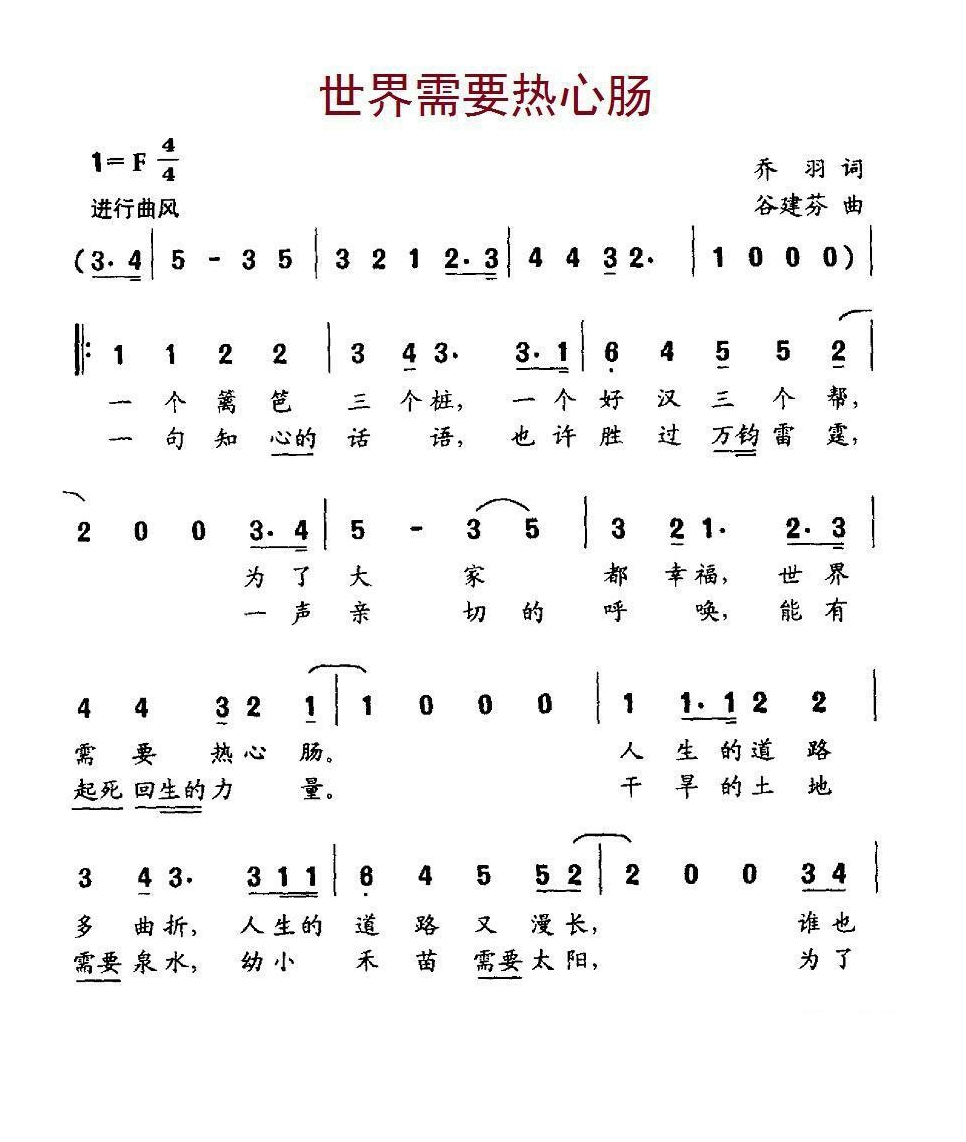 世界需要热心肠
1=F 4/4
乔 羽 词
进行曲风
谷建芬 曲
(3· 4 | 5 - 3 5 | 3 2 1 2· 3 | 4 4 3 2· | 1 0 0 0) |
‖: 1 1 2 2 | 3 4 3· 3· 1 | 6 4 5 5 2 |
一 个 篱 笆 三 个 桩, 一 个 好 汉 三 个 帮,
一 句 知 心的 话 语, 也 许 胜 过 万钧 雷 霆,
2 0 0 3· 4 | 5 - 3 5 | 3 2 1· 2· 3 |
为 了 大 家 都 幸 福, 世 界
一 声 亲 切 的 呼 唤, 能 有
4 4 3 2 1 | 1 0 0 0 | 1 1· 1 2 2 |
需 要 热 心 肠。 人 生 的 道 路
起死 回生的 力 量。 干 旱 的 土 地
3 4 3· 3 1 1 | 6 4 5 5 2 | 2 0 0 3 4 |
多 曲 折, 人 生 的 道 路 又 漫 长, 谁 也
需要 泉 水, 幼 小 禾 苗 需要 太 阳, 为 了